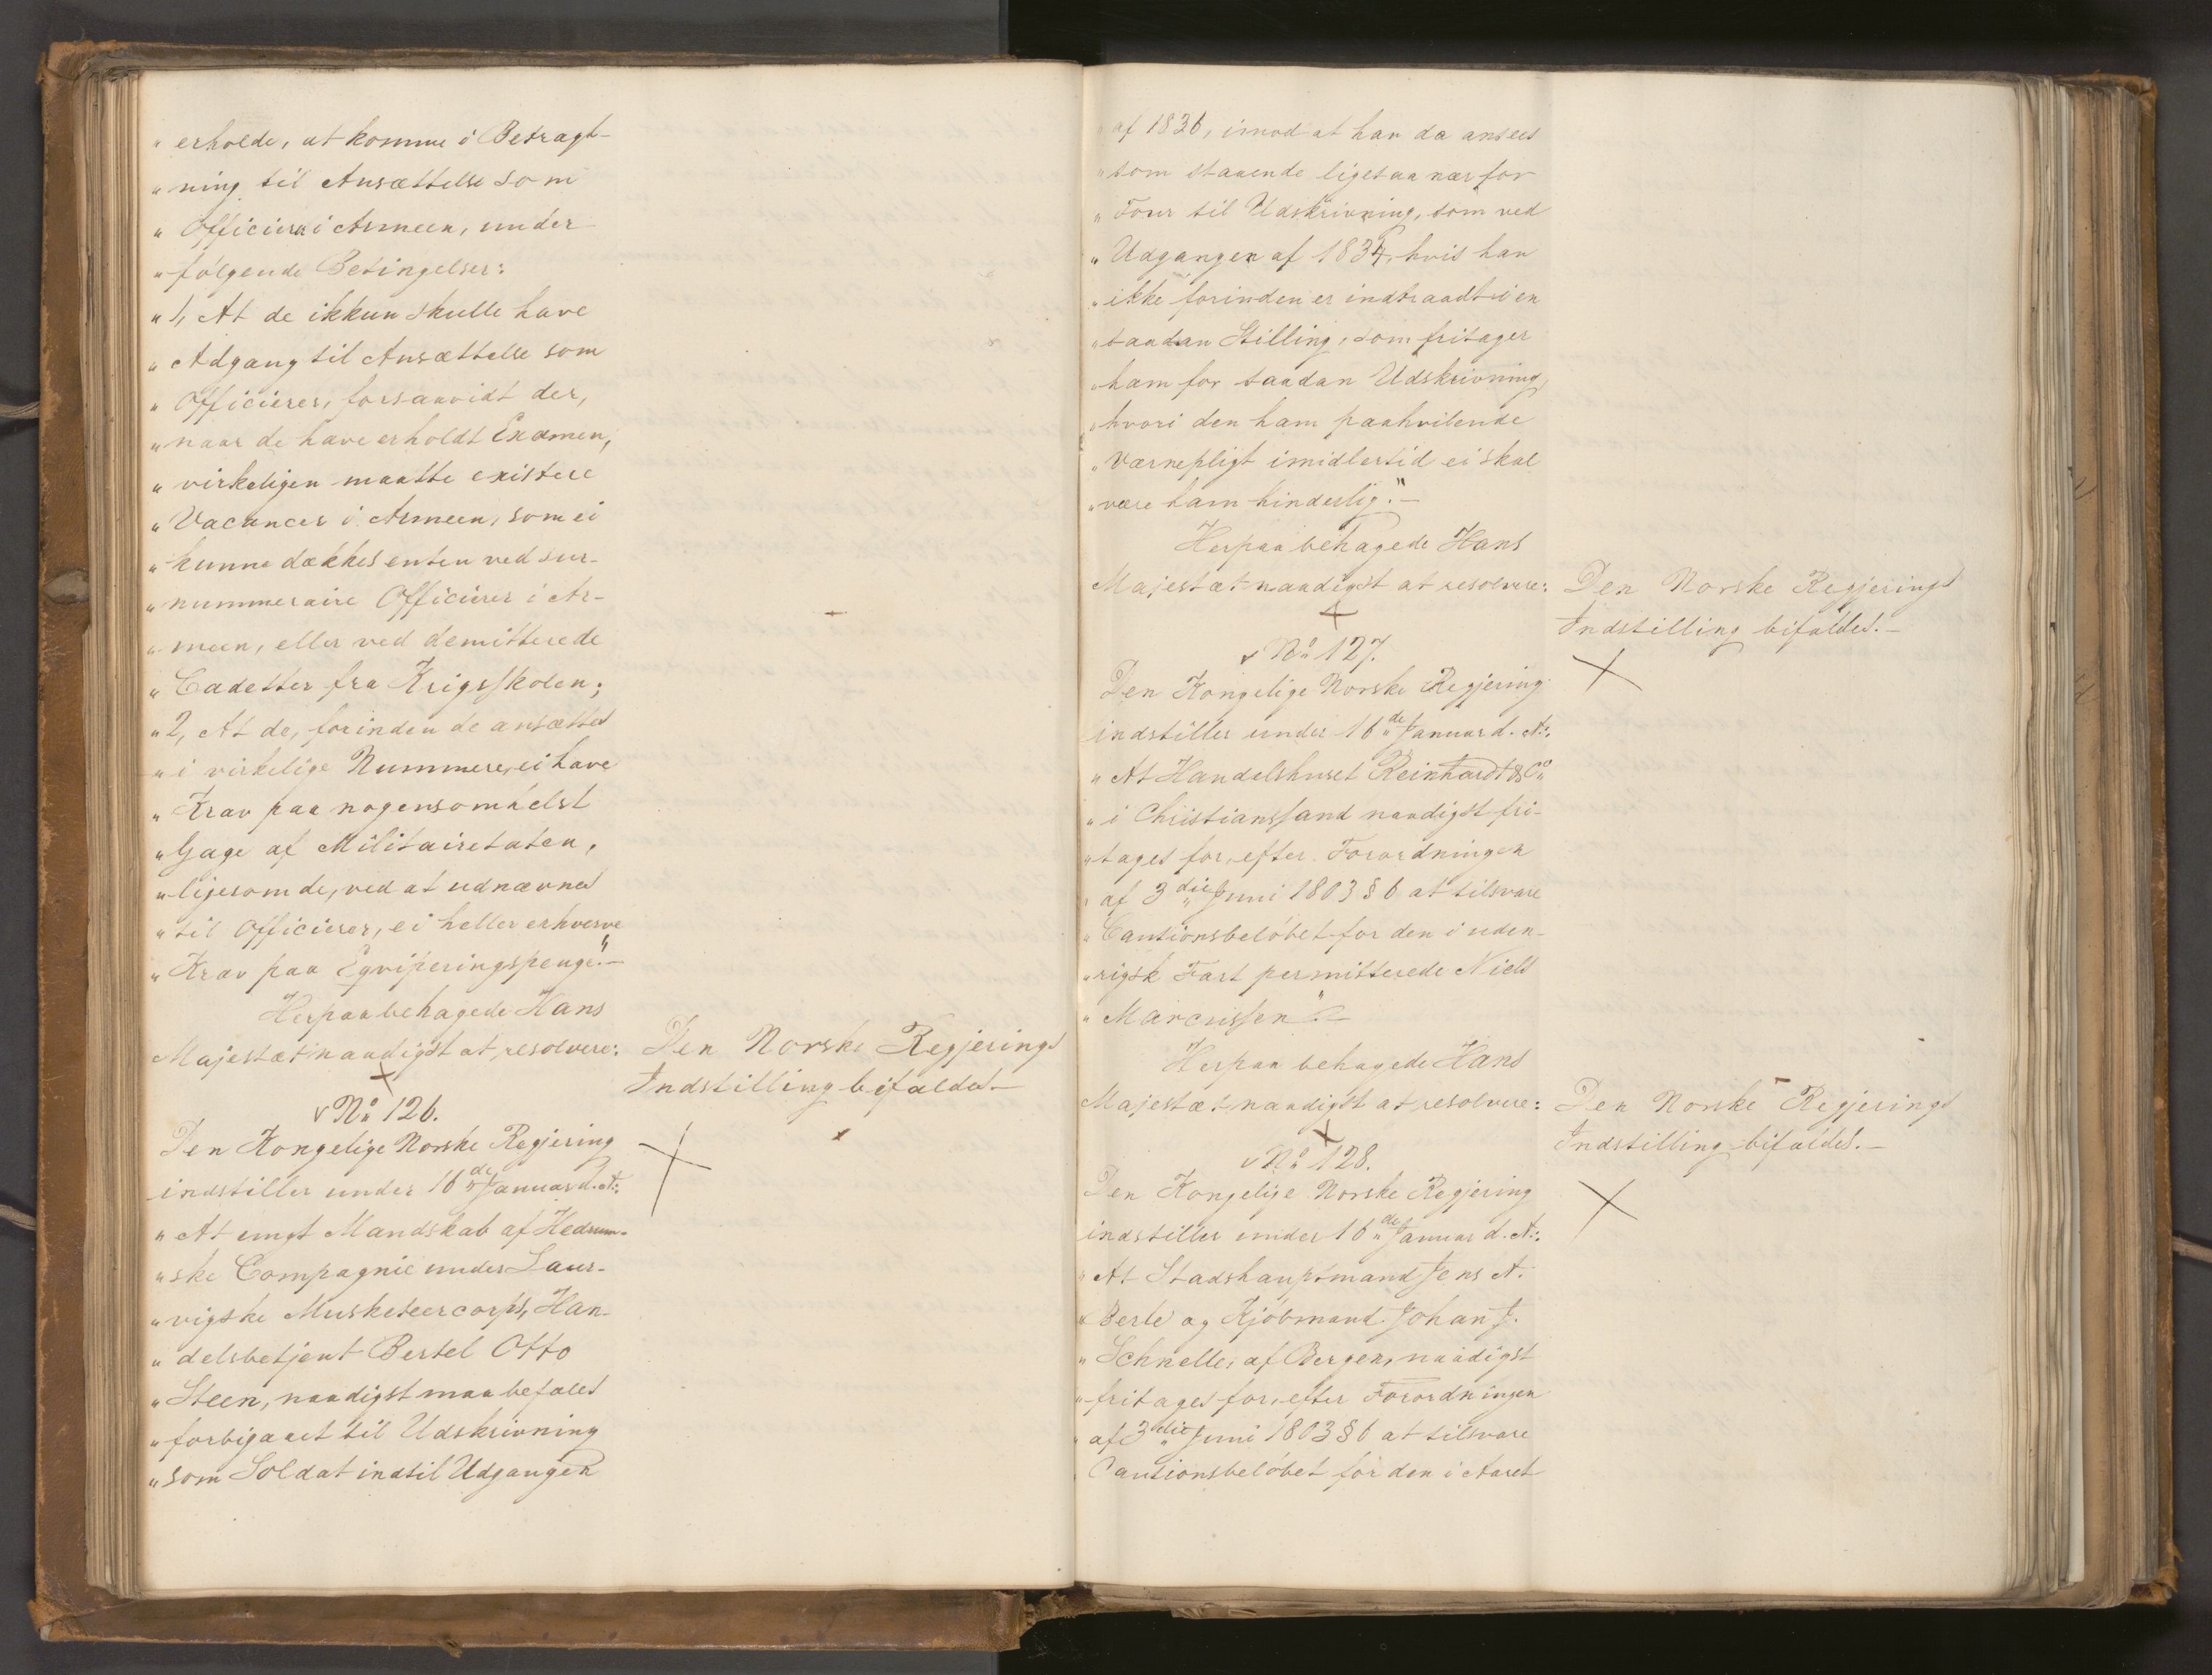 „ erholde, at komme i Betragt-
„ ning til Ansættelse som
„ Officierer i Armeen, under
„ følgende Betingelser:
„ 1, At de ikkun skulle have
„ Adgang til Ansættelse som
„ Officierer, forsaavidt der,
„ naar de have erholdt Examen,
„ virkeligen maatte existere
„ Vacancer i Armeen, som ei
„ kunne dækkes enten ved sur-
„ nummeraire Officierer i Ar-
„ meen, eller ved demitterede
„ Cadetter fra Krigsskolen;
„ 2, At de, forinden de ansættes
„ i virkelige Nummere, ei have
„ Krav paa nogensomhelst
„ Gage af Militairetaten,
„ ligesom de, ved at udnævnes
„ til Officierer, ei heller erhverve
„ Krav paa Eqviperingspenge."—
Herpaa behagede Hans
Majestæt naadigst at resolvere:
Den Norske Regjerings
Indstilling bifaldes.—
No 126.
Den Kongelige Norske Regjering
indstiller under 16de Januar d. A:,
„ At ungt Mandskab af Hedrum-
„ ske Compagnie under Laur-
„ vigske Musketeercorps, Han-
„ delsbetjent Bertel Otto
„ Steen, naadigst maa befales
„ forbigaaet til Udskrivning
„ som Soldat indtil Udgangen
„ af 1836, imod at han da ansees
„ som staaende ligesaa nær for
„ Tour til Udskrivning, som ved
„ Udgangen af 1834, hvis han
„ ikke forinden er indtraadt i en
„ saadan Stilling, som fritager
„ ham for saadan Udskrivning,
„ hvori den ham paahvilende
„ Værnepligt imidlertid ei skal
„ være ham hinderlig."—
Herpaa behagede Hans
Majestæt naadigst at resolvere:
Den Norske Regjerings
Indstilling bifaldes.—
No 127.
Den Kongelige Norske Regjering
indstiller under 16de Januar d. A:,
„ At Handelshuset Reinhardt & Co
„ i Christianssand naadigst fri-
„ tages for, efter Forordningen
„ af 3die Juni 1803 § 6 at tilsvare
„ Cautionsbeløbet for den i uden-
„ rigsk Fart permitterede Niels
„ Marcussen".—
Herpaa behagede Hans
Majestæt naadigst at resolvere:
Den Norske Regjerings
Indstilling bifaldes.—
No 128.
Den Kongelige Norske Regjering
indstiller under 16de Januar d. A:,
„ At Stadshauptmand Jens A.
„ Berle og Kjøbmand Johan J.
„ Schnelle, af Bergen, naadigst
„ fritages for, efter Forordningen
„ af 3die Juni 1803 § 6 at tilsvare
Cautionsbeløbet for den i Aaret